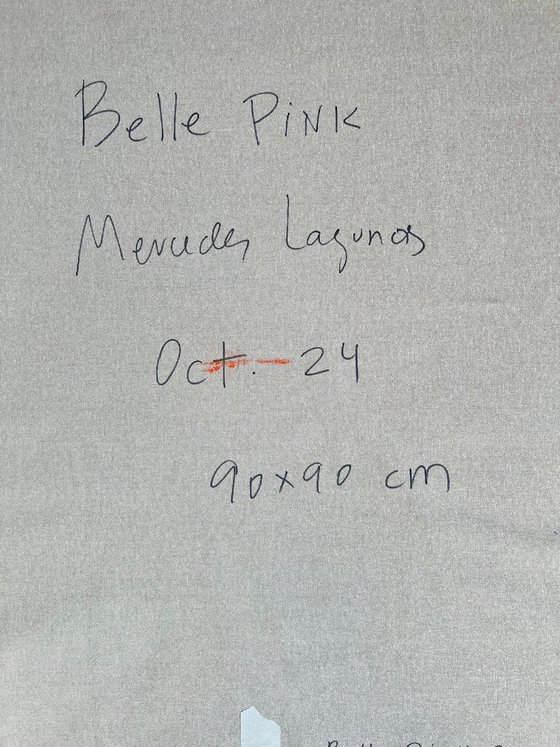 Belle PiNK
Mercedes Lagunas
Oct. 24
90x90 cm